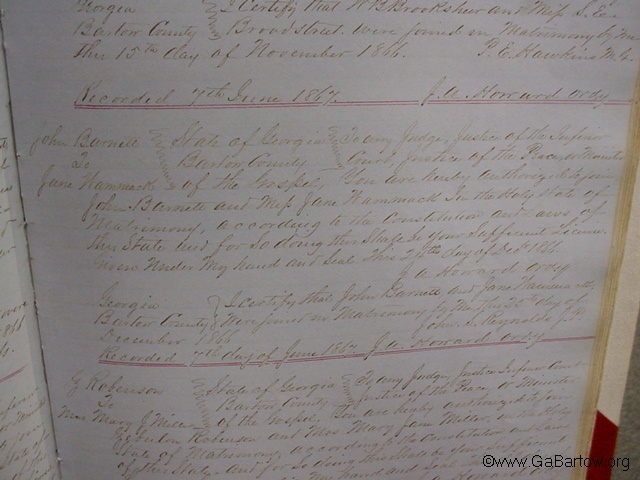 Georgia I Certify that W B Brooksher and Miss S. E.
Bartow County Broadstreet were joined in Matrimony by me
this 15th day of November 1866. P. E. Hawkins M.G.
Recorded 7th June 1867. J. A. Howard ordy
John Barnett State of Georgia To any Judge, Justice of the Inferior
To Bartow County Court, Justice of the Peace, or Minister
Jane Hammack of the Gospel, You are hereby authorized to join
John Barnett and Miss Jane Hammack In the Holy State of
Matrimony, according to the Constitution and Laws of
this State and for so doing this Shall be your Sufficient License
Given Under My hand and Seal this day of Decr 1866.
J. A. Howard ordy
Georgia I certify that John Barnett and Jane Hammack
Bartow County Were joined in Matrimony by Me this day of
December 1866 John S. Reynolds J.P.
Recorded 7th day of June 1867. J. A. Howard ordy
G Robinson State of Georgia To any Judge, Justice Inferior Court
To Bartow County Justice of the Peace or Minister
Mrs Mary J Miller of the Gospel You are hereby authorized to join
Robinson and Mrs Mary Jane Miller in the Holy
State of Matrimony, according to the Constitution and Laws
of this State and for so doing this Shall be your Sufficient
hand and Seal
©www.GaBartow.org